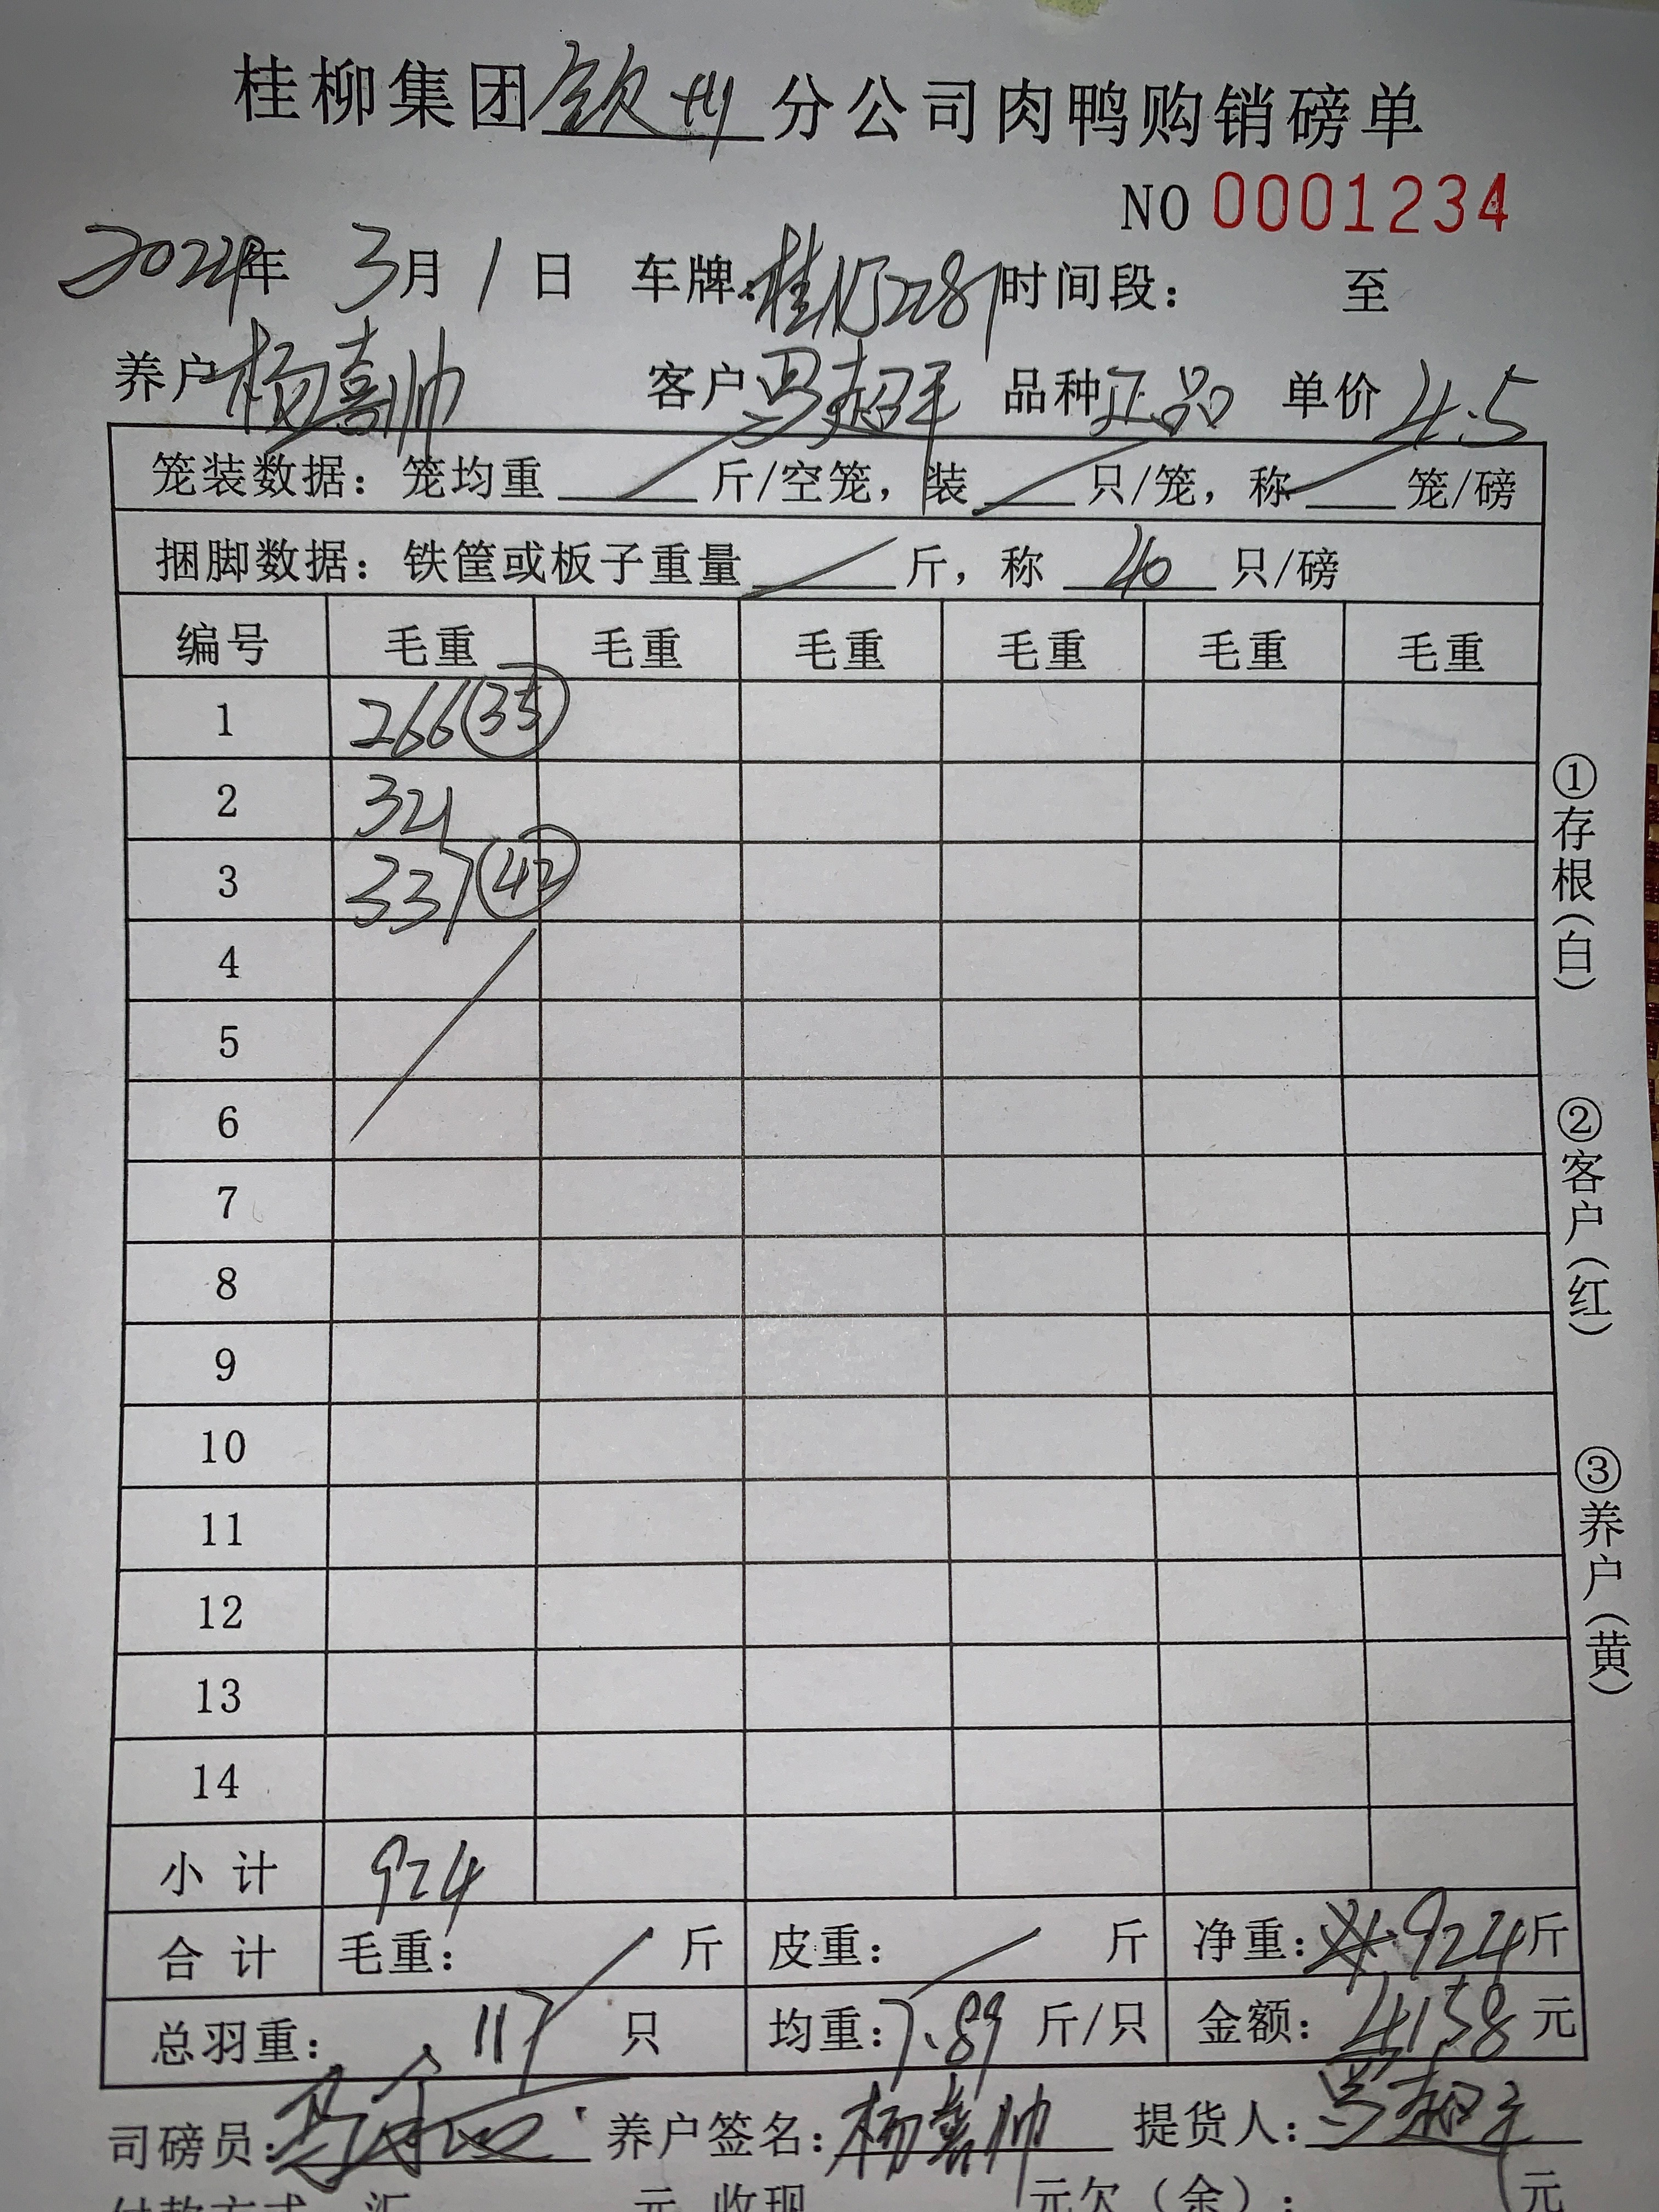 桂柳集团钦州分公司肉鸭购销磅单
NO 0001234
2024年 3月 1日 车牌:桂 时间段: 至
养户杨喜帅 客户 品种正品 单价 4.5
笼装数据:笼均重 斤/空笼,装 只/笼,称 笼/磅
捆脚数据:铁筐或板子重量 斤,称 40 只/磅
编号 毛重 毛重 毛重 毛重 毛重 毛重
1 266 (35)
2 321
3 337 (42)
4
5
6
7
8
9
10
11
12
13
14
小计 924
合计 毛重: 斤 皮重: 斤 净重: 924斤
总羽重: 117 只 均重:7.89 斤/只 金额: 4158元
司磅员: 养户签名:杨喜帅 提货人:
付款方式 汇 元 收现 元欠(余): 元
①存根(白)
②客户(红)
③养户(黄)